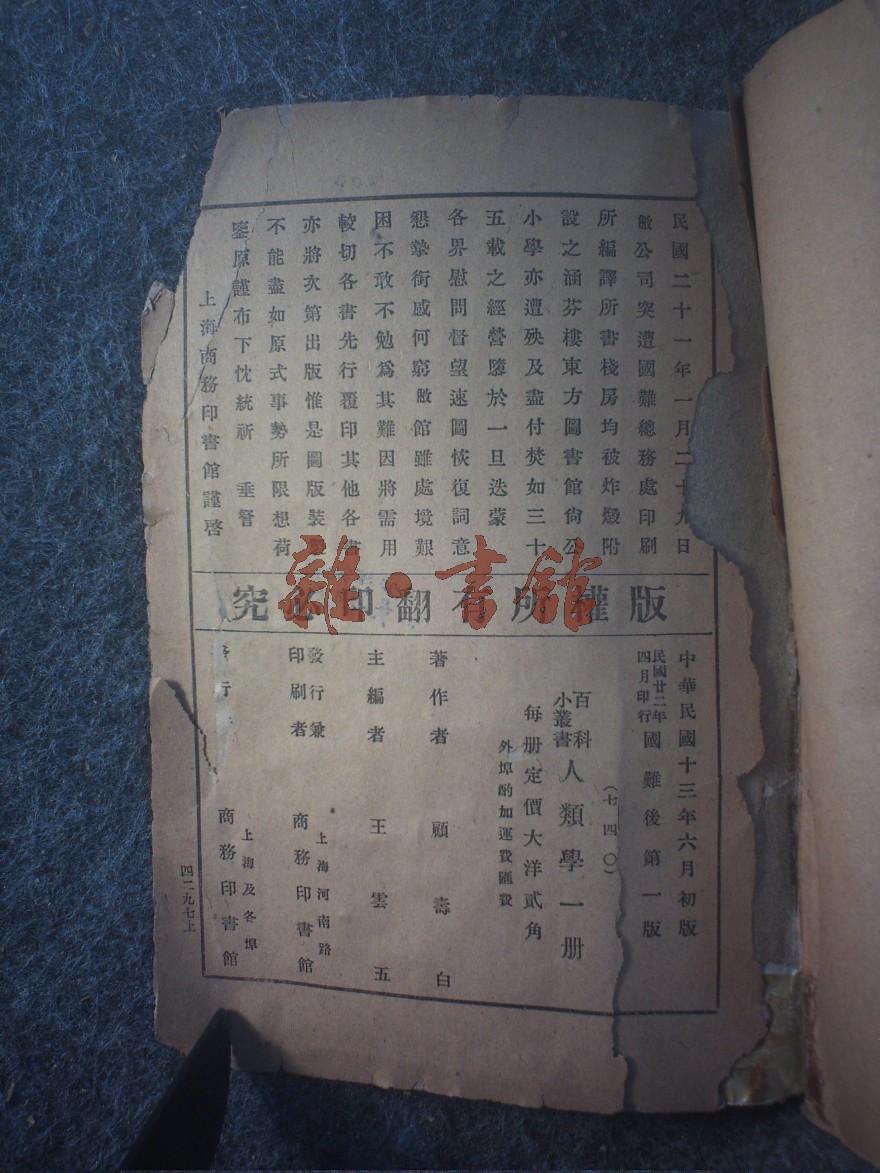 民國二十一年一月二十九日
敝公司突遭國難總務處印刷
所編譯所書棧房均被炸燬附
設之涵芬樓東方圖書館尙公
小學亦遭殃及盡付焚如三十
五載之經營隳於一旦迭蒙
各界慰問督望速圖恢復詞意
懇摯銜感何窮敝館雖處境艱
困不敢不勉爲其難因將需用
較切各書先行覆印其他各書
亦將次第出版惟是圖版裝
不能盡如原式事勢所限想荷
鑒原謹布下忱統祈 垂詧
上海商務印書館謹啓
版權所有翻印必究
中華民國十三年六月初版
民國廿二年四月印行國難後第一版
(七四〇)
百科小叢書人類學一册
每册定價大洋貳角
外埠酌加運費匯費
著作者 顧壽白
主編者 王雲五
發行兼印刷者 上海河南路商務印書館
發行 上海及各埠商務印書館
四二九七上
雜·書館